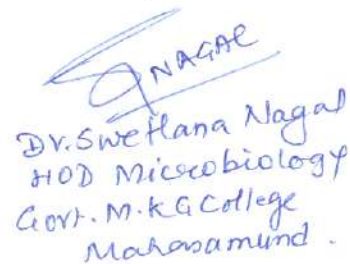 NAGAL
Dr. Swetlana Nagal
HOD Microbiology
Govt. M.K G College
Mahasamund.